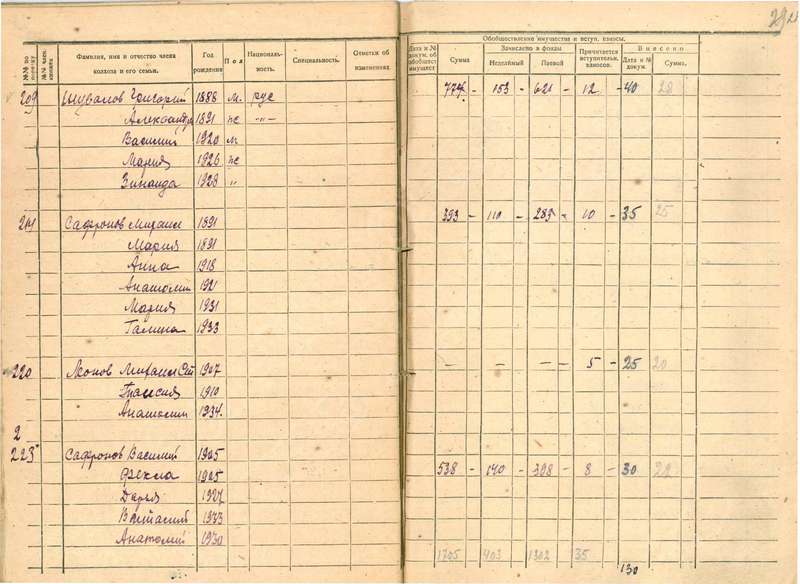 №№ по порядку
№№ член. книжки
Фамилия, имя и отчество члена колхоза и его семьи.
Год рождения
Пол
Националь-ность.
Специальность.
Отметки об изменениях.
209 Шувалов Григорий 1888 м. рус
Александра 1891 ж —"—
Василий 1920 м
Мария 1926 ж
Зинаида 1928 "
Сафронов Михаил 1891
Мария 1891
Анна 1918
Анатолий 1921
Мария 1931
Галина 1933
220 Леонов Михаил 1907
Таисия 1910
Анатолий 1934.
2
223 Сафронов Василий 1905
Фекла 1905
Дарья 1927
1933
Анатолий 1930
Обобществление имущества и вступ. взносы.
Дата и № докум. об обобщест. имущест.
Сумма
Зачислено в фонды
Неделимый
Паевой
Причитается вступительн. взносов.
Внесено
Дата и № докум.
Сумма.
774 - 153 - 621 - 12 - 40 28
393 - 110 - 283 - 10 - 35 25
— — — 5 - 25 20
538 - 140 - 398 - 8 - 30 22
1705 403 1302 35
130